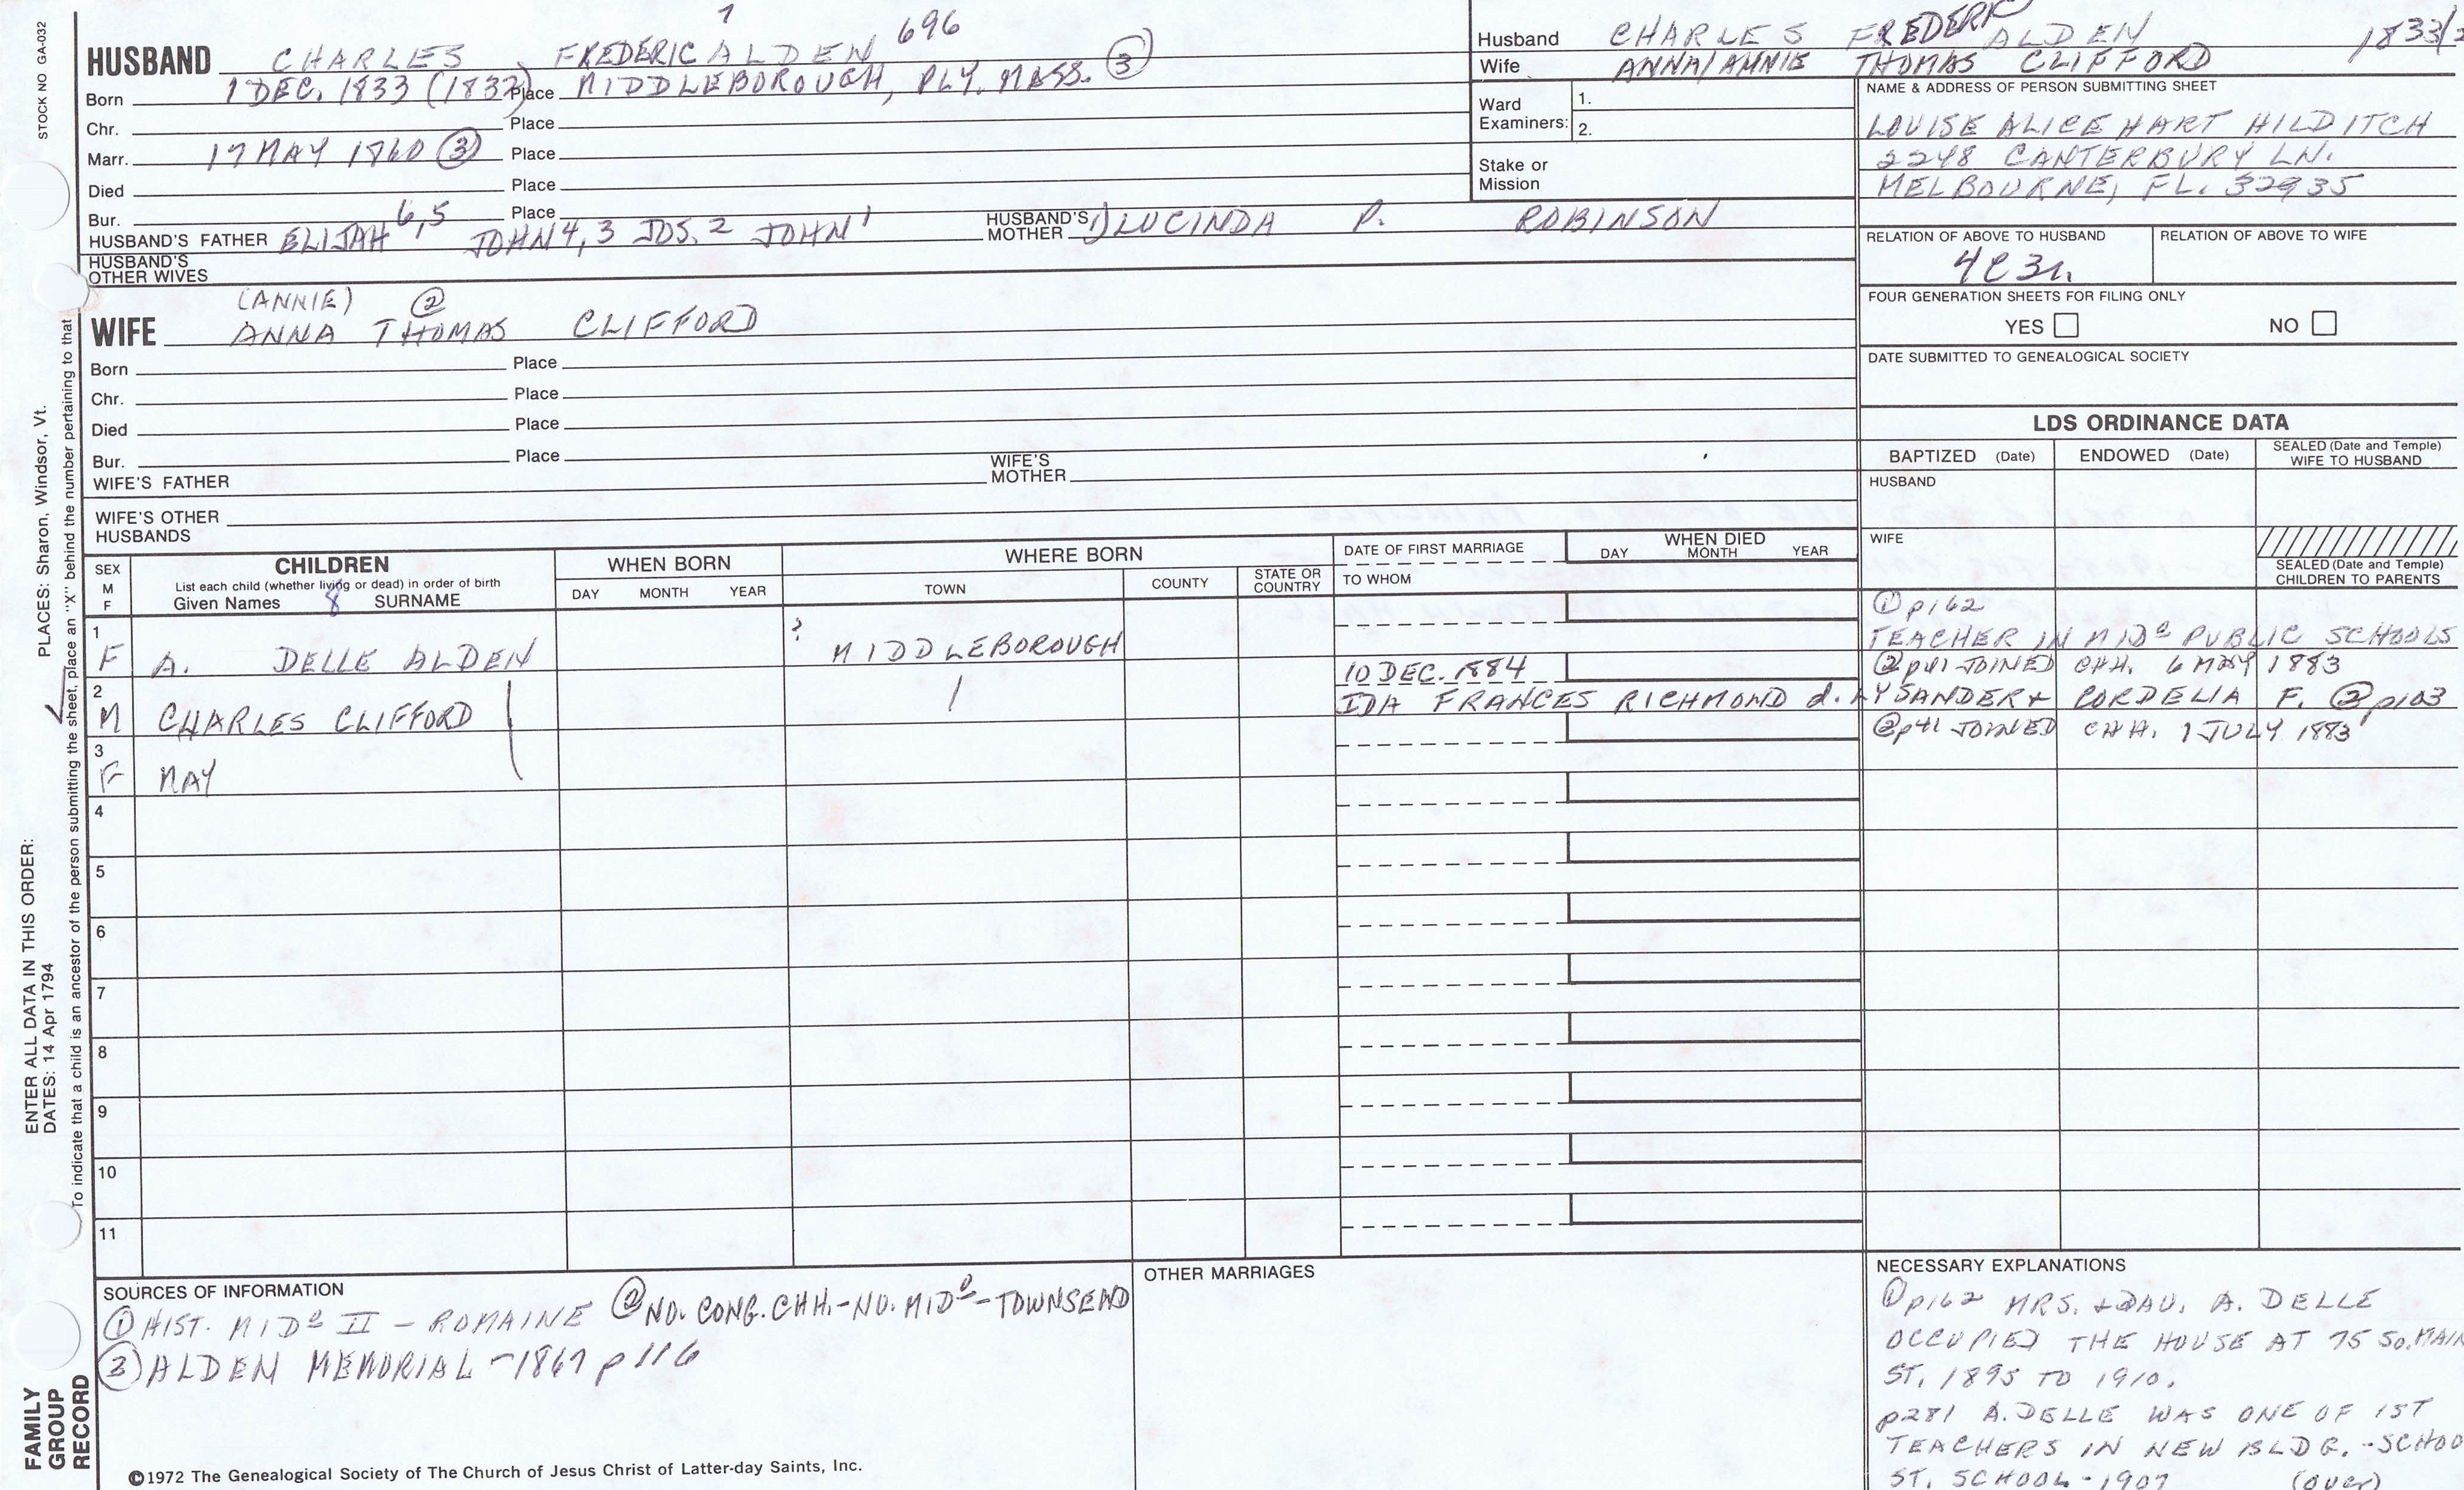 STOCK NO GA-032
7
696
HUSBAND CHARLES FREDERIC ALDEN
Born 1 DEC. 1833 (1832) Place MIDDLEBOROUGH, PLY. MASS. ③
Chr. Place
Marr. 17 MAY 1860 ③ Place
Died Place
Bur. Place
HUSBAND'S FATHER ELIJAH 6,5 JOHN 4,3 JOS. 2 JOHN 1 HUSBAND'S MOTHER 1) LUCINDA P. ROBINSON
HUSBAND'S OTHER WIVES
(ANNIE) ②
WIFE ANNA THOMAS CLIFFORD
Born Place
Chr. Place
Died Place
Bur. Place
WIFE'S FATHER WIFE'S MOTHER
WIFE'S OTHER HUSBANDS
Husband CHARLES FREDERIC ALDEN 1833/2
Wife ANNA/ANNIE THOMAS CLIFFORD
Ward Examiners: 1.
2.
Stake or Mission
NAME & ADDRESS OF PERSON SUBMITTING SHEET
LOUISE ALICE HART HILDITCH
2248 CANTERBURY LN.
MELBOURNE, FL. 32935
RELATION OF ABOVE TO HUSBAND RELATION OF ABOVE TO WIFE
4C3r.
FOUR GENERATION SHEETS FOR FILING ONLY
YES NO
DATE SUBMITTED TO GENEALOGICAL SOCIETY
LDS ORDINANCE DATA
BAPTIZED (Date) ENDOWED (Date) SEALED (Date and Temple) WIFE TO HUSBAND
HUSBAND
WIFE
SEALED (Date and Temple) CHILDREN TO PARENTS
SEX M F
CHILDREN
List each child (whether living or dead) in order of birth
Given Names 8 SURNAME
WHEN BORN
DAY MONTH YEAR
WHERE BORN
TOWN COUNTY STATE OR COUNTRY
DATE OF FIRST MARRIAGE
TO WHOM
WHEN DIED
DAY MONTH YEAR
1 F A. DELLE ALDEN ? MIDDLEBOROUGH
① p162
TEACHER IN MIDo PUBLIC SCHOOLS
② p41 JOINED CHH. 6 MAY 1883
2 M CHARLES CLIFFORD 10 DEC. 1884
IDA FRANCES RICHMOND d. LYSANDER + CORDELIA F. ② p103
② p41 JOINED CHH. 1 JULY 1883
3 F MAY
4
5
6
7
8
9
10
11
SOURCES OF INFORMATION
① HIST. MIDo II - ROMAINE ② NO. CONG. CHH. - NO. MIDo - TOWNSEND
③ ALDEN MEMORIAL - 1867 p 116
OTHER MARRIAGES
NECESSARY EXPLANATIONS
① p162 MRS. + DAU. A. DELLE
OCCUPIED THE HOUSE AT 75 SO. MAIN
ST. 1895 TO 1910.
p281 A. DELLE WAS ONE OF 1ST
TEACHERS IN NEW BLDG. - SCHOO
ST. SCHOOL - 1907 (over)
©1972 The Genealogical Society of The Church of Jesus Christ of Latter-day Saints, Inc.
FAMILY GROUP RECORD
ENTER ALL DATA IN THIS ORDER:
DATES: 14 Apr 1794
PLACES: Sharon, Windsor, Vt.
To indicate that a child is an ancestor of the person submitting the sheet, place an "X" behind the number pertaining to that